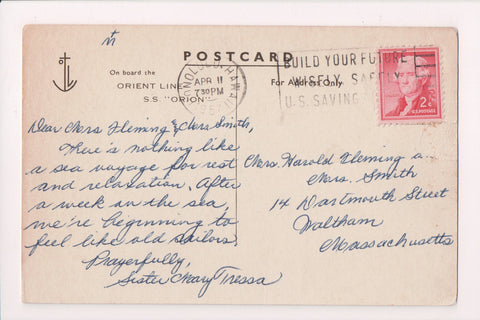 POSTCARD
On board the
ORIENT LINE
S.S. "ORION"
For Address Only
HONOLULU, HAWAII
APR 11
730PM
BUILD YOUR FUTURE
WISELY, SAFELY
U.S. SAVING
2¢
Dear Mrs Fleming & Mrs Smith,
There's nothing like
a sea voyage for rest
and relaxation. After
a week on the sea,
we're beginning to
feel like old sailors.
Prayerfully,
Sister Mary Tressa
Mrs. Harold Fleming a
Mrs. Smith
14 Dartmouth Street
Waltham
Massachusetts